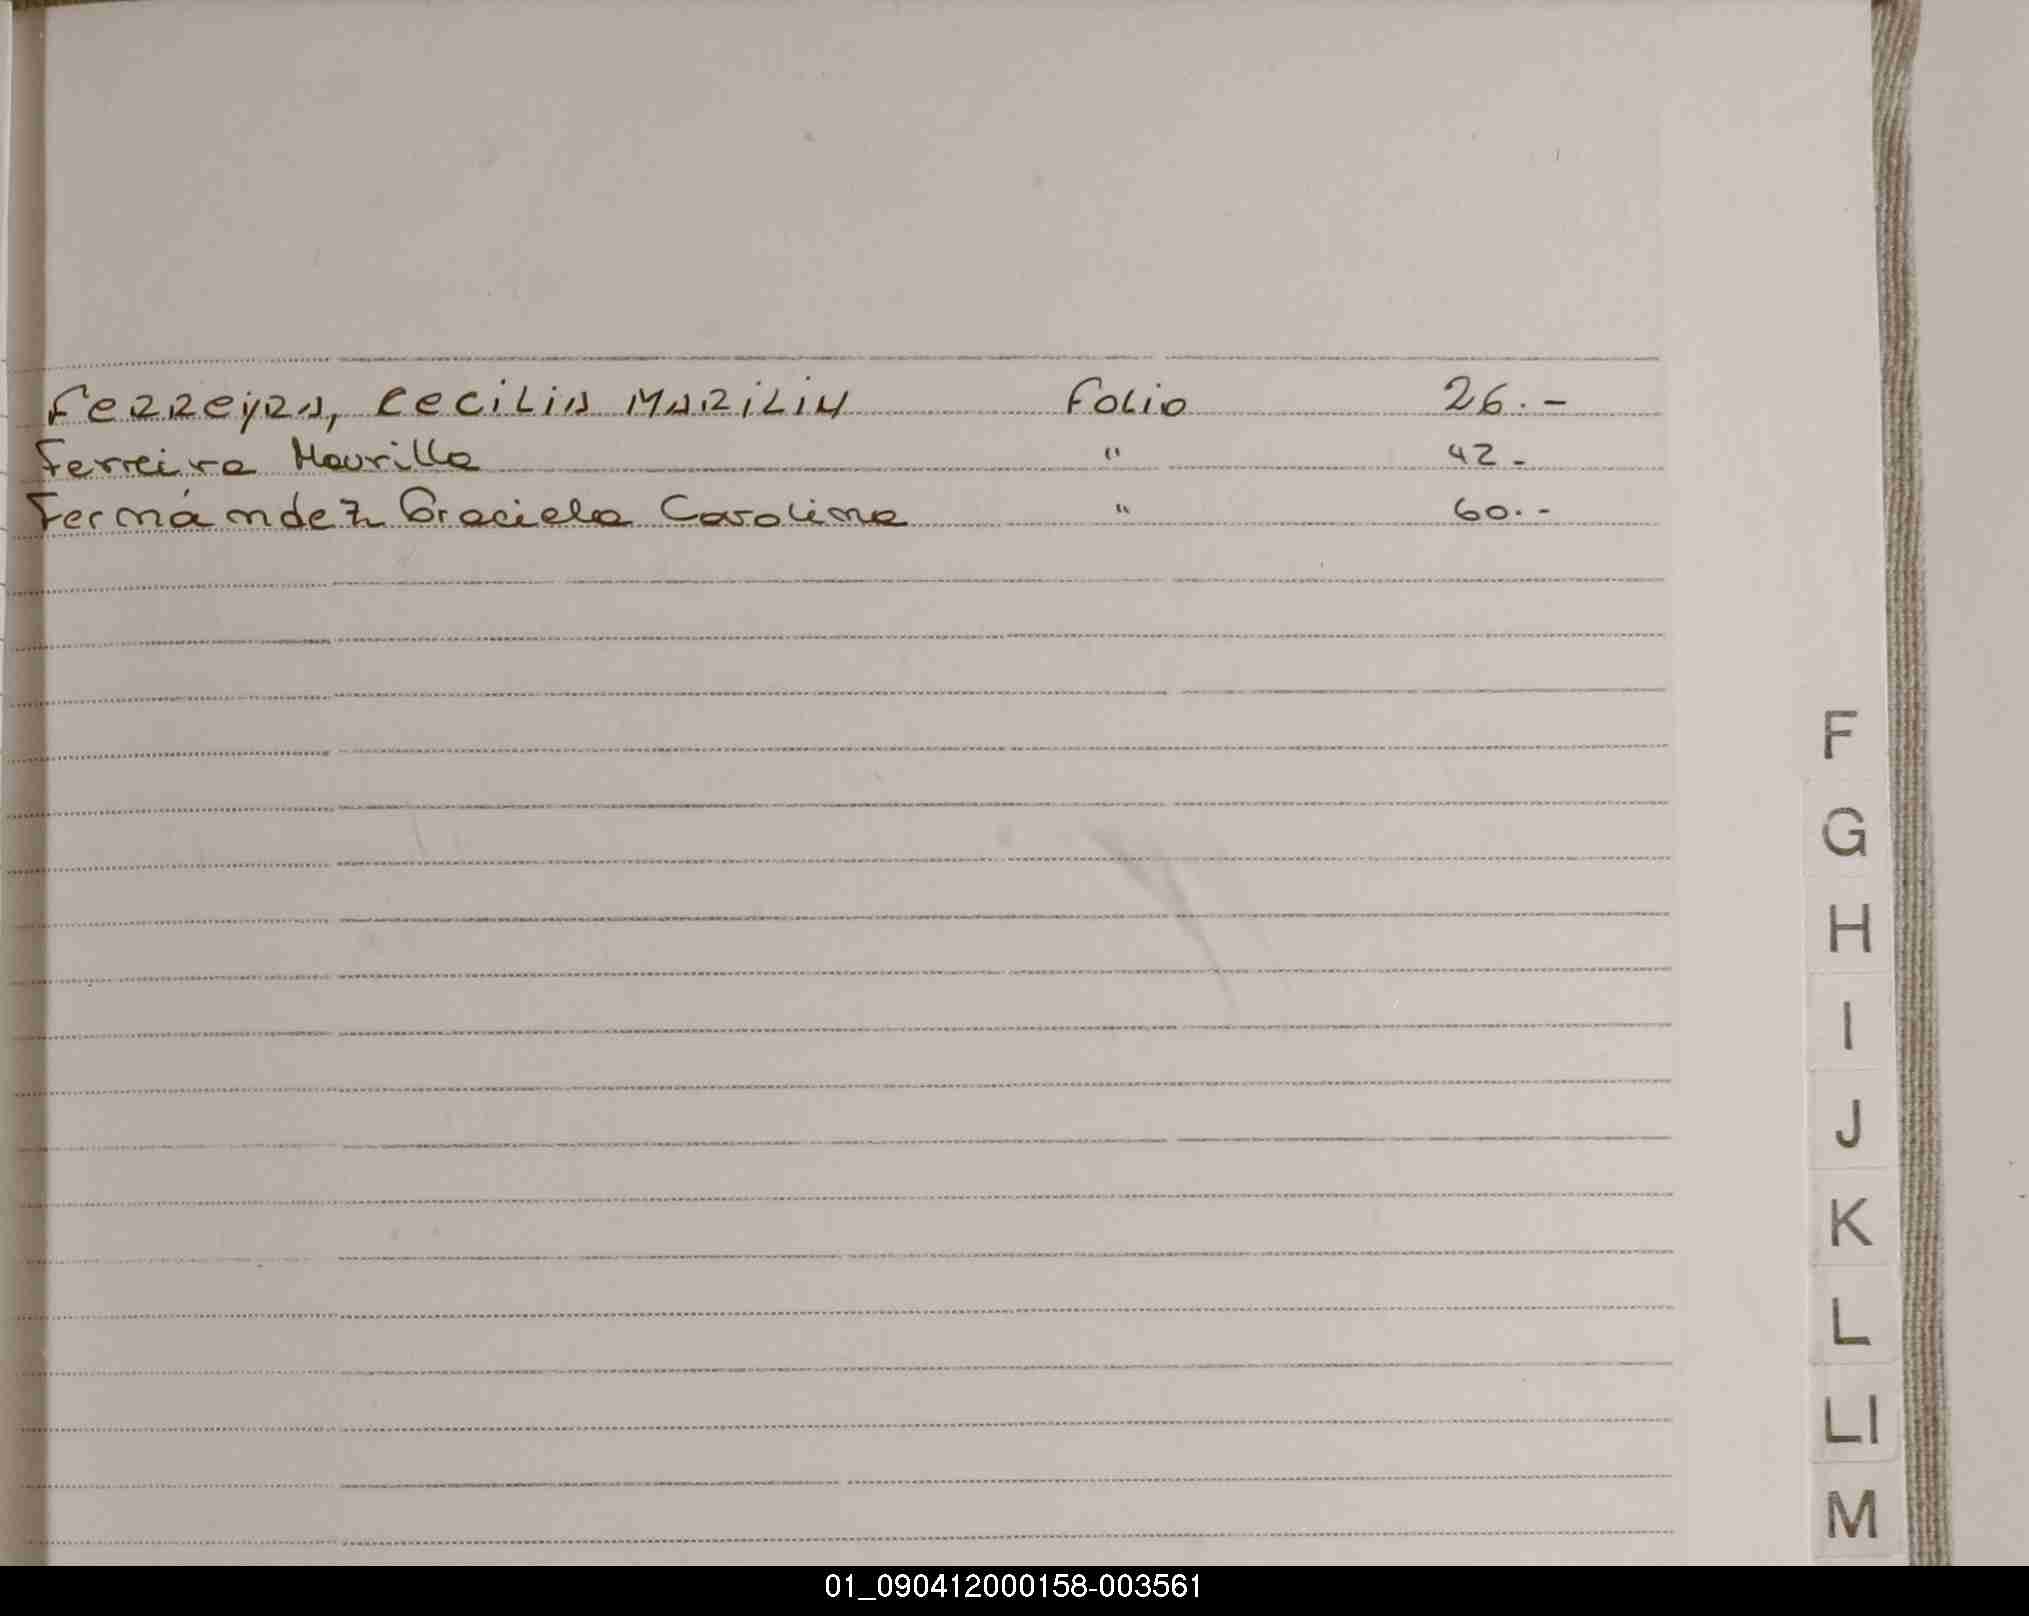 Ferreyra, Cecilia Marilin Folio 26.-
Ferreira Maurilla " 42-
Fernández Graciela Carolina " 60.-
F
G
H
I
J
K
L
Ll
M
01_090412000158-003561